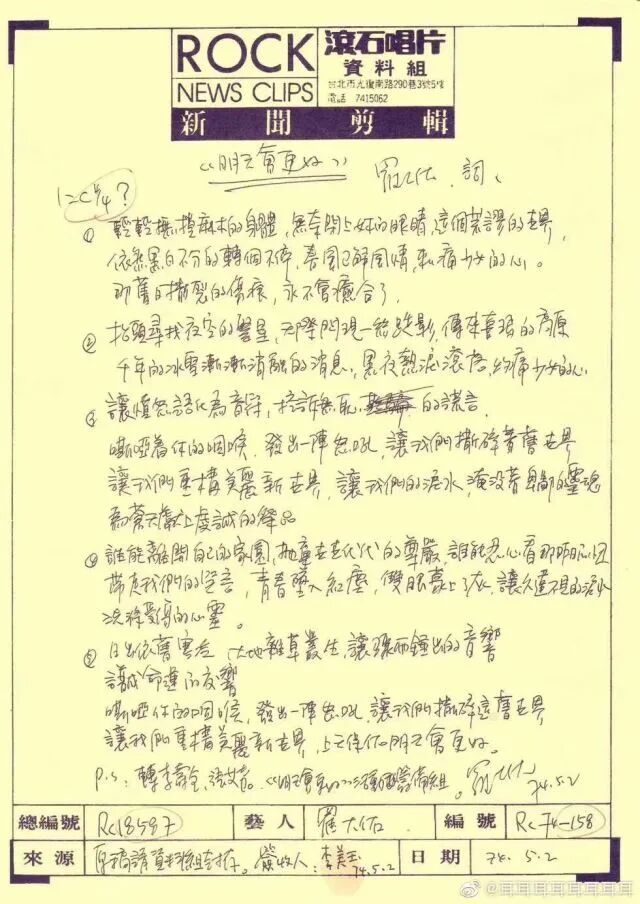 ROCK
NEWS CLIPS
滾石唱片
資料組
台北市光復南路290巷3號5樓
電話 7415062
新聞剪輯
《明天會更好》 羅大佑 詞、
1=C 4/4 ?
① 輕輕摧殘麻木的身體,無奈閉上妳的眼睛,這個荒謬的世界,
依然黑白不分的轉個不停,春風已解風情,刺痛少女的心。
那舊日撕裂的傷痕,永不會癒合了,
② 抬頭尋找夜空的繁星,天際閃現一絲蹤影,傳來喜瑪的高原
千年的冰雪漸漸消融的消息,黑夜熱淚滾燙,灼痛少女的心
③ 讓憤怒語化為音符,控訴無恥 的謊言
嘶啞著你的咽喉,發出一陣怒吼,讓我們撕碎舊世界
讓我們重構美麗新世界,讓我們的淚水,淹沒卑鄙的靈魂
為蒼天獻上虔誠的祭品
④ 誰能離開自己的家園,拋棄世世代代的尊嚴,誰能忍心看那昨日
帶走我們的 言,青春墜入紅塵,雙眼蒙上了灰,讓久違不見的淚水
洗滌受傷的心靈。
⑤ 日出依舊寒冷 大地雜草叢生,讓 鐘出的音響
譜成命運的反響
嘶啞你的咽喉,發出一陣怒吼,讓我們撕碎這舊世界
讓我們重構美麗新世界,上天保佑明天會更好。
P.S: 轉李壽全,張艾嘉。《明天會更好》 籌備組。羅大佑 74.5.2
總編號 Rc18597 藝人 羅大佑 編號 Rc74-158
來源 原稿請資料組存。簽收人:李美玉 74.5.2 日期 74.5.2
@耳耳耳耳耳耳耳耳